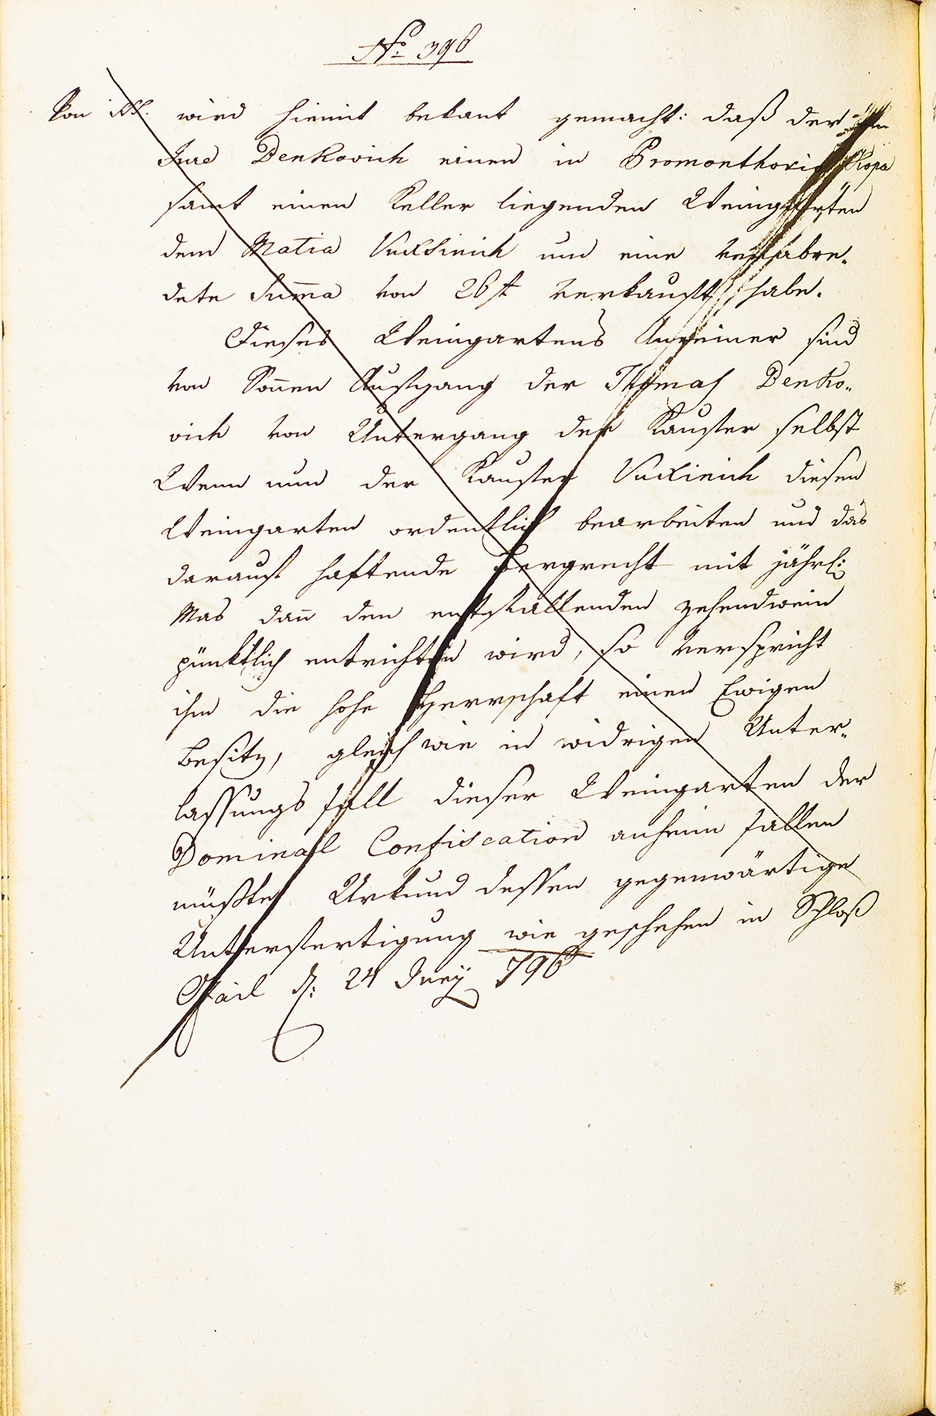 No. 396
Von wird hiemit bekant gemacht: daß der
Jure Denkovich einen in Promonthorio Kopa
samt einen Keller liegenden Weingarten
dem Matia Vuckßinich um eine verabre-
dete Suma von 26 f. verkauft habe.
Dieses Weingartens Anreiner sind
von Sonnen Aufgang der Thomas Denko-
vich von Untergang der Kaufer selbst
Wenn nun der Kaufer Vuckßinich diesen
Weingarten ordentlich bearbeiten und das
darauf haftende Bergrecht mit jährl:
Mas dan den entfallenden zehendwein
pünktlich entrichten wird, so verspricht
ihm die hohe Herrschaft einen Ewigen
Besitz, gleich wie in widrigen Unter-
lassungs fall dieser Weingarten der
Dominal Confiscation anheim fallen
müßte Urkund dessen gegenwärtige
Unterfertigung wie geschehen in Schloß
d: 24 Juny 796